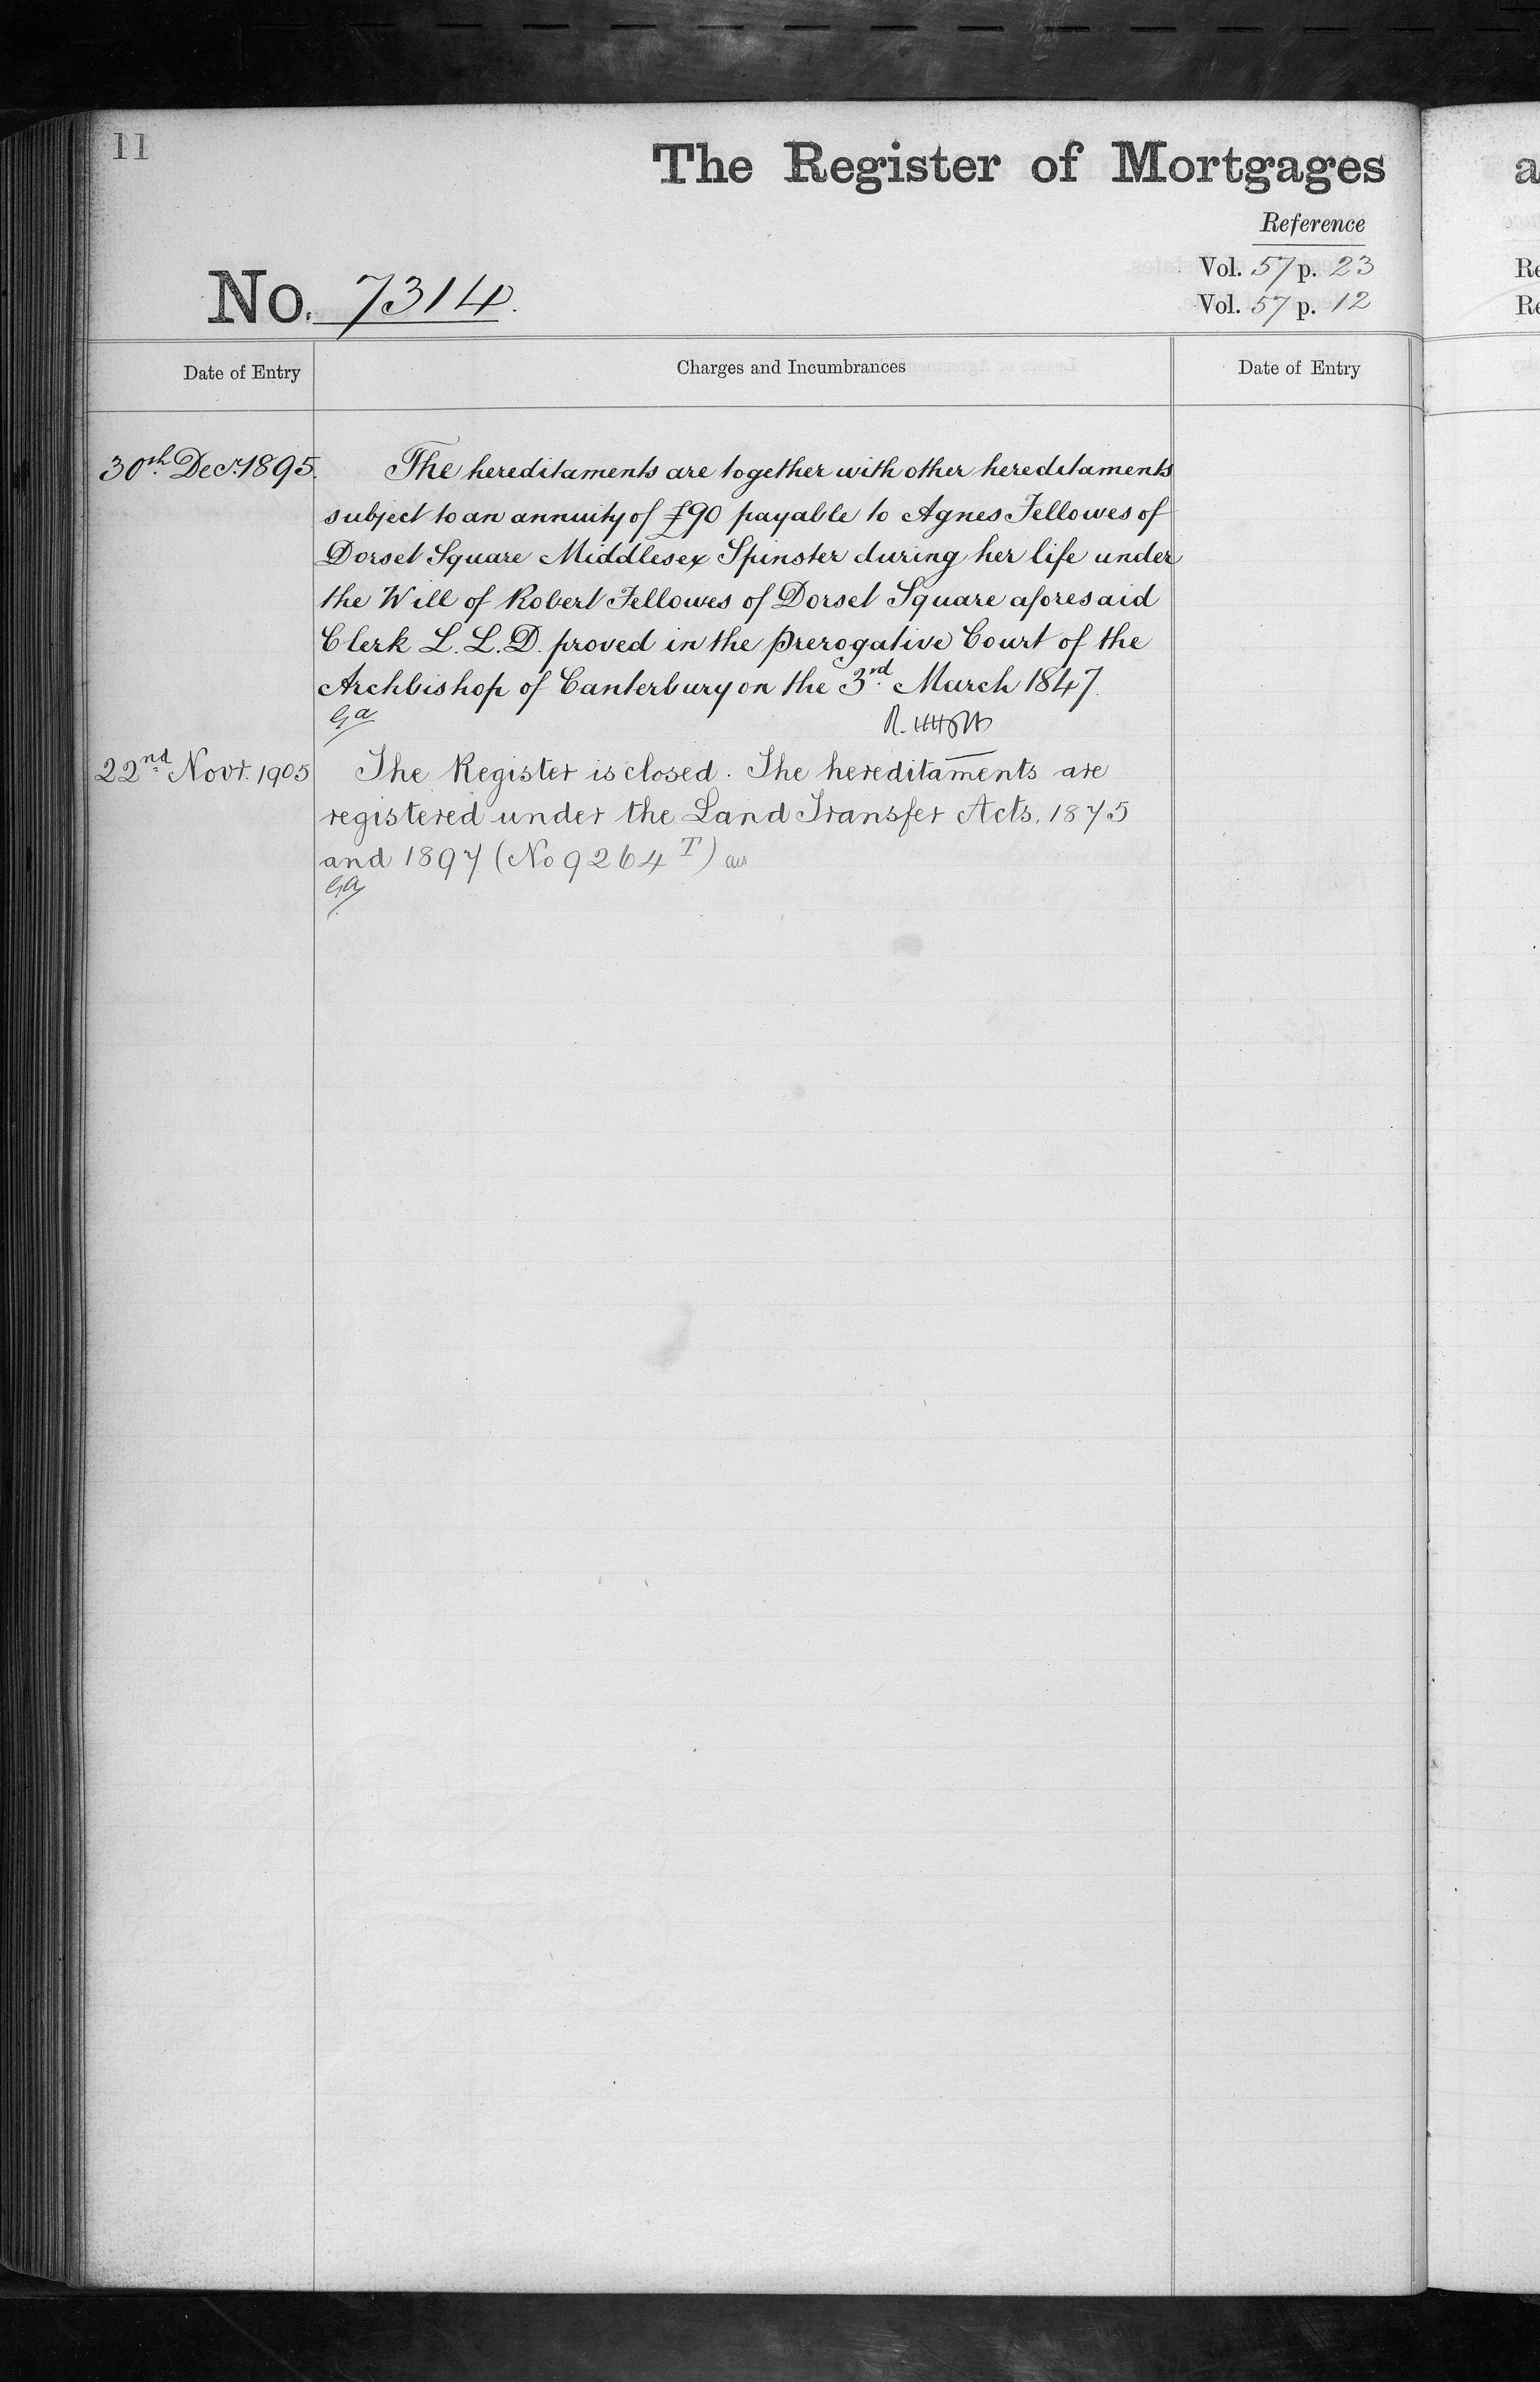 11
The Register of Mortgages
Reference
Vol. 57 p. 23
Vol. 57 p. 12
No. 7314.
Date of Entry
Charges and Incumbrances
Date of Entry
30th Decr. 1895.
The hereditaments are together with other hereditaments
subject to an annuity of £90 payable to Agnes Fellowes of
Dorset Square Middlesex Spinster during her life under
the Will of Robert Fellowes of Dorset Square aforesaid
Clerk L. L. D. proved in the Prerogative Court of the
Archbishop of Canterbury on the 3rd March 1847.
Ga
22nd Novr. 1905
The Register is closed. The hereditaments are
registered under the Land Transfer Acts. 1875
and 1897 (No 9264 T)
Ga
a
Re
Re